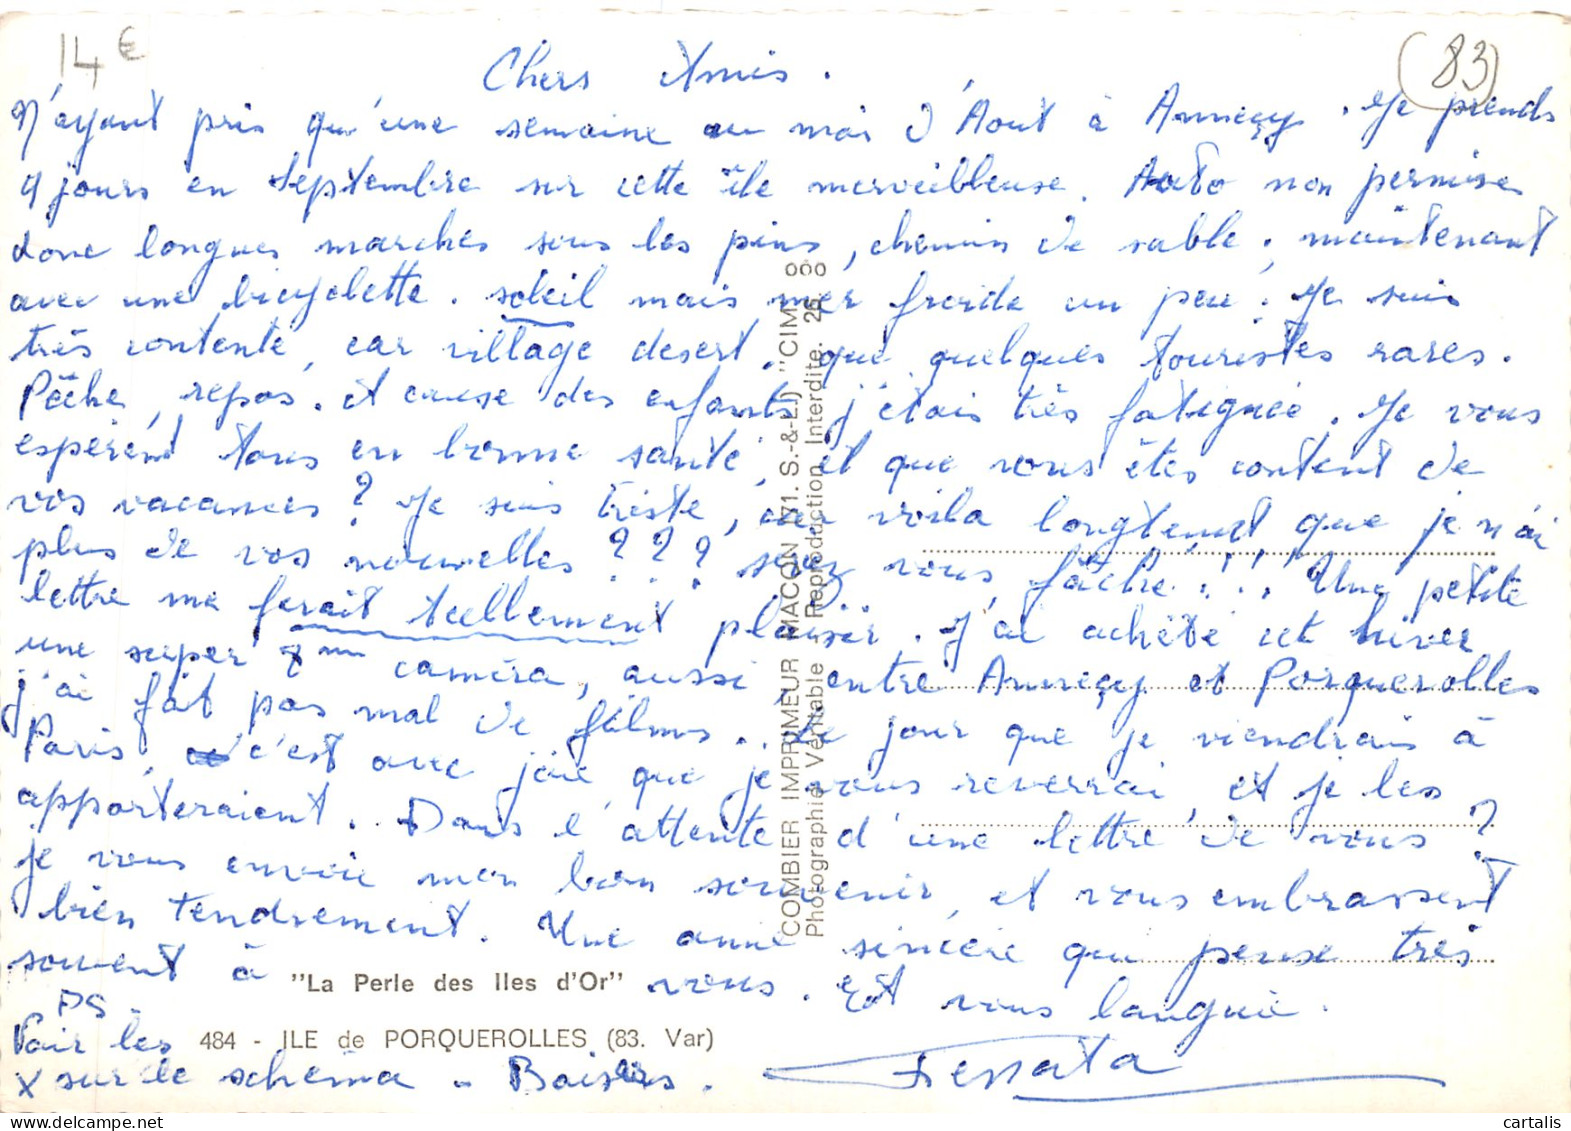 14 €
(83)
Chers Amis.
N'ayant pris qu'une semaine au mois d'Aout à Anneçy. Je prends
4 jours en Septembre sur cette île merveilleuse. Auto non permise
donc longues marches sous les pins, chemin de sable, maintenant
avec une bicyclette. soleil mais mer froide un peu. Je suis
très contente, car village desert, que quelques touristes rares.
Pêche, repos. et cause des enfants j'étais très fatiguée. Je vous
espèrent tous en bonne santé, et que vous êtes content de
vos vacances ? Je suis triste, car voila longtemps que je n'ai
plus de vos nouvelles ? ? ? seriez vous, fâché...!!! Une petite
lettre me ferait tellement plaisir. J'ai achété cet hiver
une super 8 mm caméra, aussi entre Anneçy et Porquerolles
j'ai fait pas mal de films. Le jour que je viendrais à
Paris, c'est avec joie que je vous reverrai, et je les
apporteraient. Dans l'attente d'une lettre de vous ?
je vous envoie mon bon souvenir, et vous embrassent
bien tendrement. Une amie sincère qui pense très
souvent à vous. Et vous languie.
"La Perle des Iles d'Or"
PS.
Voir les
484 - ILE de PORQUEROLLES (83. Var)
x sur le schéma - Baisers.
COMBIER IMPRIMEUR MACON (71. S.-&-L.) "CIM"
Photographie Véritable - Reproduction Interdite. 25.
cartalis